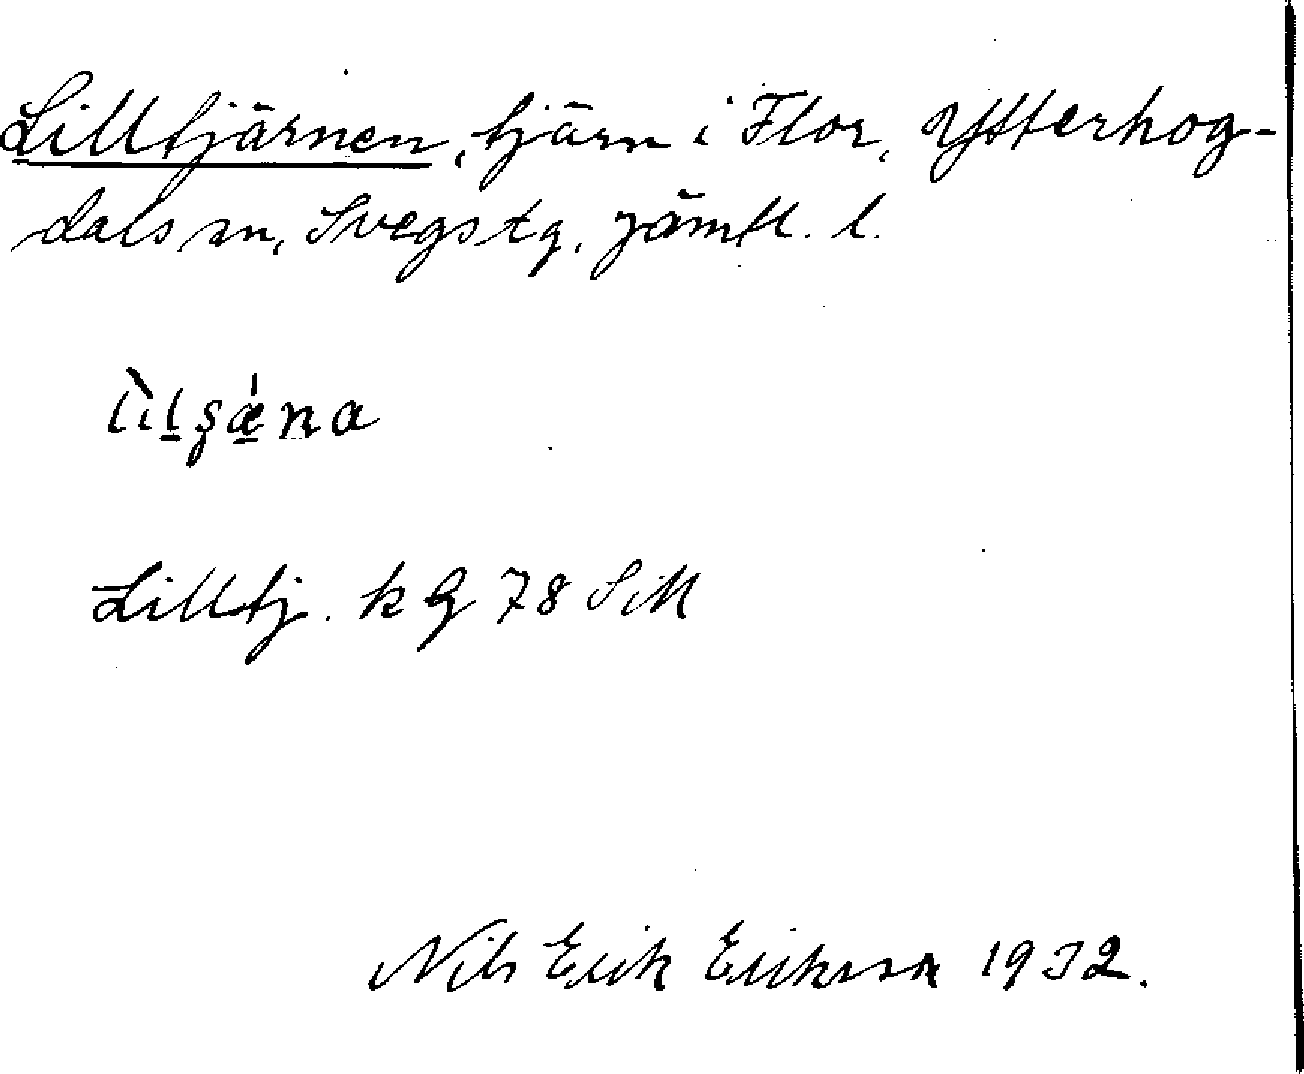 Lilltjärnen, tjärn i Flor, Ytterhog-
dals sn, Svegs tg, Jämtl. l.
Lilltj. k G 78 SM
Nils Erik Eriksson 1932.